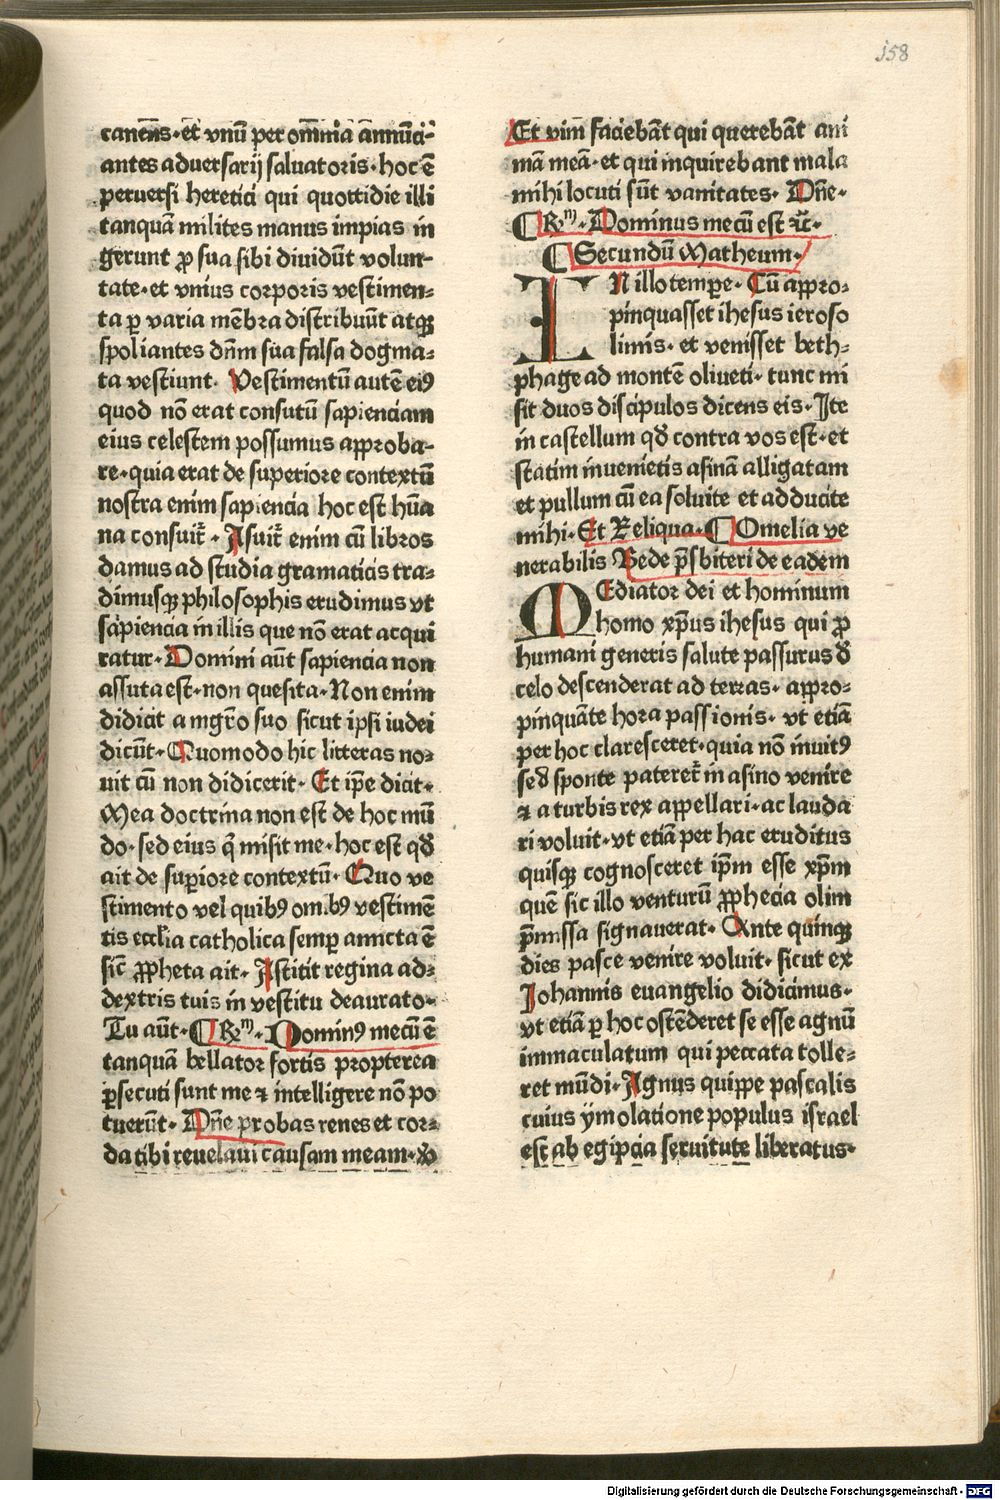 158
canēns· et vnū per om̄nia annūci-
antes aduersarij saluatoris· hoc ē
peruersi heretici qui quottidie illi
tanquā milites manus impias in
gerunt ꝓ sua sibi diuidūt volun-
tate· et vnius corporis vestimen-
ta ꝑ varia mēbra distribuūt atqꝫ
spoliantes dn̄m sua falsa dogma-
ta vestiunt· Vestimentū autē eiꝰ
quod nō erat consutū sapienciam
eius celestem possumus approba-
re· quia erat de superiore contextū
nostra enim sapiencia hoc est hūa
na consuit᷑· Assuit᷑ enim cū libros
damus ad studia gramaticis tra-
dimusqꝫ philosophis erudimus vt
sapiencia in illis que nō erat acqui
ratur· Domini aūt sapiencia non
assuta est· non quesita· Non enim
didicit a mgr̄o suo sicut ipsi iudei
dicūt· Quomodo hic litteras no-
uit cū non didicerit· Et ip̄e dicit·
Mea doctrina non est de hoc mū
do· sed eius q̄ misit me· hoc est qd̄
ait de suꝑiore contextū· Quo ve
stimento vel quibꝰ om̄bꝰ vestimē
tis eccl̄ia catholica semꝑ amicta ē
sic̄ ꝓpheta ait· Astitit regina ad-
dextris tuis in vestitu deaurato·
Tu aūt· ¶ Rm· Dominꝰ mecū ē
tanquā bellator fortis propterea
ꝑsecuti sunt me ⁊ intelligere nō po
tuerūt· Dn̄e probas renes et cor-
da tibi reuelaui causam meam·
Et vim faciebāt qui querebāt ani
mā meā· et qui inquirebant mala
mihi locuti sūt vanitates· Dn̄e·
¶ Rm· Dominus mecū est ⁊c̄·
¶ Secundū Matheum·
IN illo tempe· Cū appro-
pinquasset ihesus ieroso
limis· et venisset beth-
phage ad montē oliueti· tunc mi
sit duos discipulos dicens eis· Ite
in castellum qd̄ contra vos est· et
statim inuenietis asinā alligatam
et pullum cū ea soluite et adducite
mihi· Et Reliqua· ¶ Omelia ve
nerabilis Bede p̄sbiteri de eadem
MEdiator dei et hominum
homo xp̄us ihesus qui ꝓ
humani generis salute passurus d̄
celo descenderat ad terras· appro-
pinquāte hora passionis· vt etiā
per hoc claresceret· quia nō inuitꝰ
sed̄ sponte pateret᷑ in asino venire
⁊ a turbis rex appellari· ac lauda
ri voluit· vt etiā per hac eruditus
quisqꝫ cognosceret ip̄m esse xp̄m
quē sic illo venturū ꝓphecia olim
p̄missa signauerat· Ante quinqꝫ
dies pasce venire voluit· sicut ex
Johannis euangelio didicimus·
vt etiā ꝑ hoc ostēderet se esse agnū
immaculatum qui peccata tolle-
ret mūdi· Agnus quippe pascalis
cuius ymolatione populus israel
est ab egipcia seruitute liberatus·
Digitalisierung gefördert durch die Deutsche Forschungsgemeinschaft - DFG